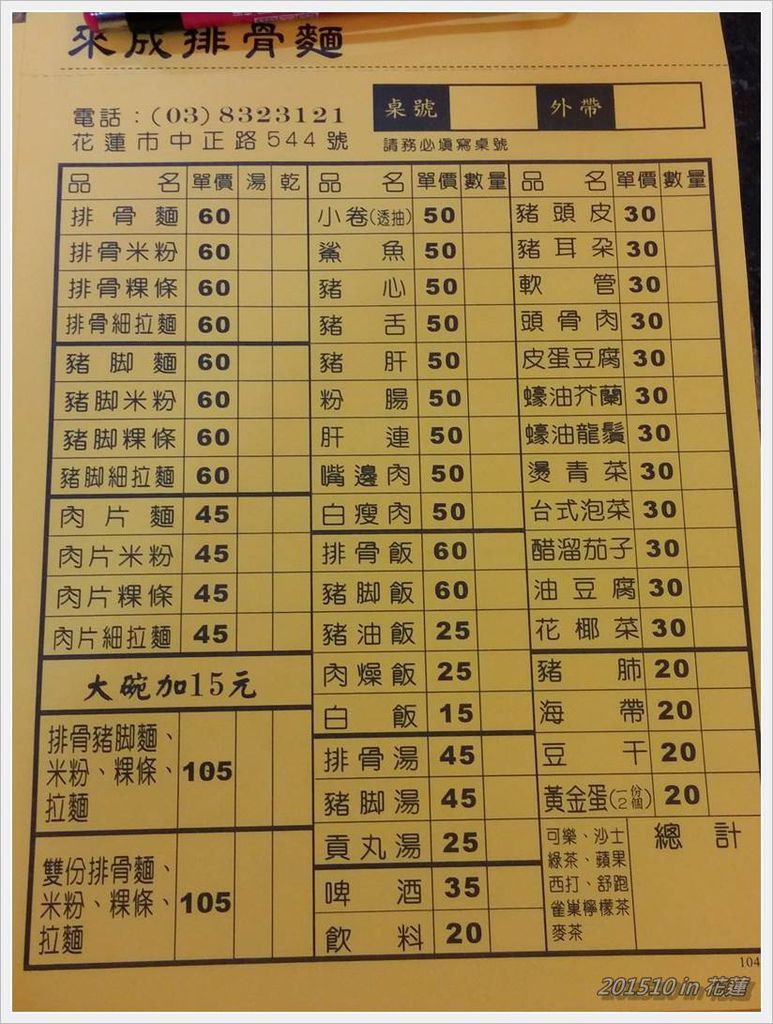 來成排骨麵
電話：(03) 8323121
花蓮市中正路544號
桌號 外帶
請務必填寫桌號
品名 單價 湯 乾
排骨麵 60
排骨米粉 60
排骨粿條 60
排骨細拉麵 60
豬脚麵 60
豬脚米粉 60
豬脚粿條 60
豬脚細拉麵 60
肉片麵 45
肉片米粉 45
肉片粿條 45
肉片細拉麵 45
大碗加15元
排骨豬脚麵、
米粉、粿條、 105
拉麵
雙份排骨麵、
米粉、粿條、 105
拉麵
品名 單價 數量
小卷(透抽) 50
鯊魚 50
豬心 50
豬舌 50
豬肝 50
粉腸 50
肝連 50
嘴邊肉 50
白瘦肉 50
排骨飯 60
豬脚飯 60
豬油飯 25
肉燥飯 25
白飯 15
排骨湯 45
豬脚湯 45
貢丸湯 25
啤酒 35
飲料 20
品名 單價 數量
豬頭皮 30
豬耳朶 30
軟管 30
頭骨肉 30
皮蛋豆腐 30
蠔油芥蘭 30
蠔油龍鬚 30
燙青菜 30
台式泡菜 30
醋溜茄子 30
油豆腐 30
花椰菜 30
豬肺 20
海帶 20
豆干 20
黃金蛋(一份2個) 20
可樂、沙士
綠茶、蘋果
西打、舒跑
雀巢檸檬茶
麥茶
總計
104
201510 in 花蓮